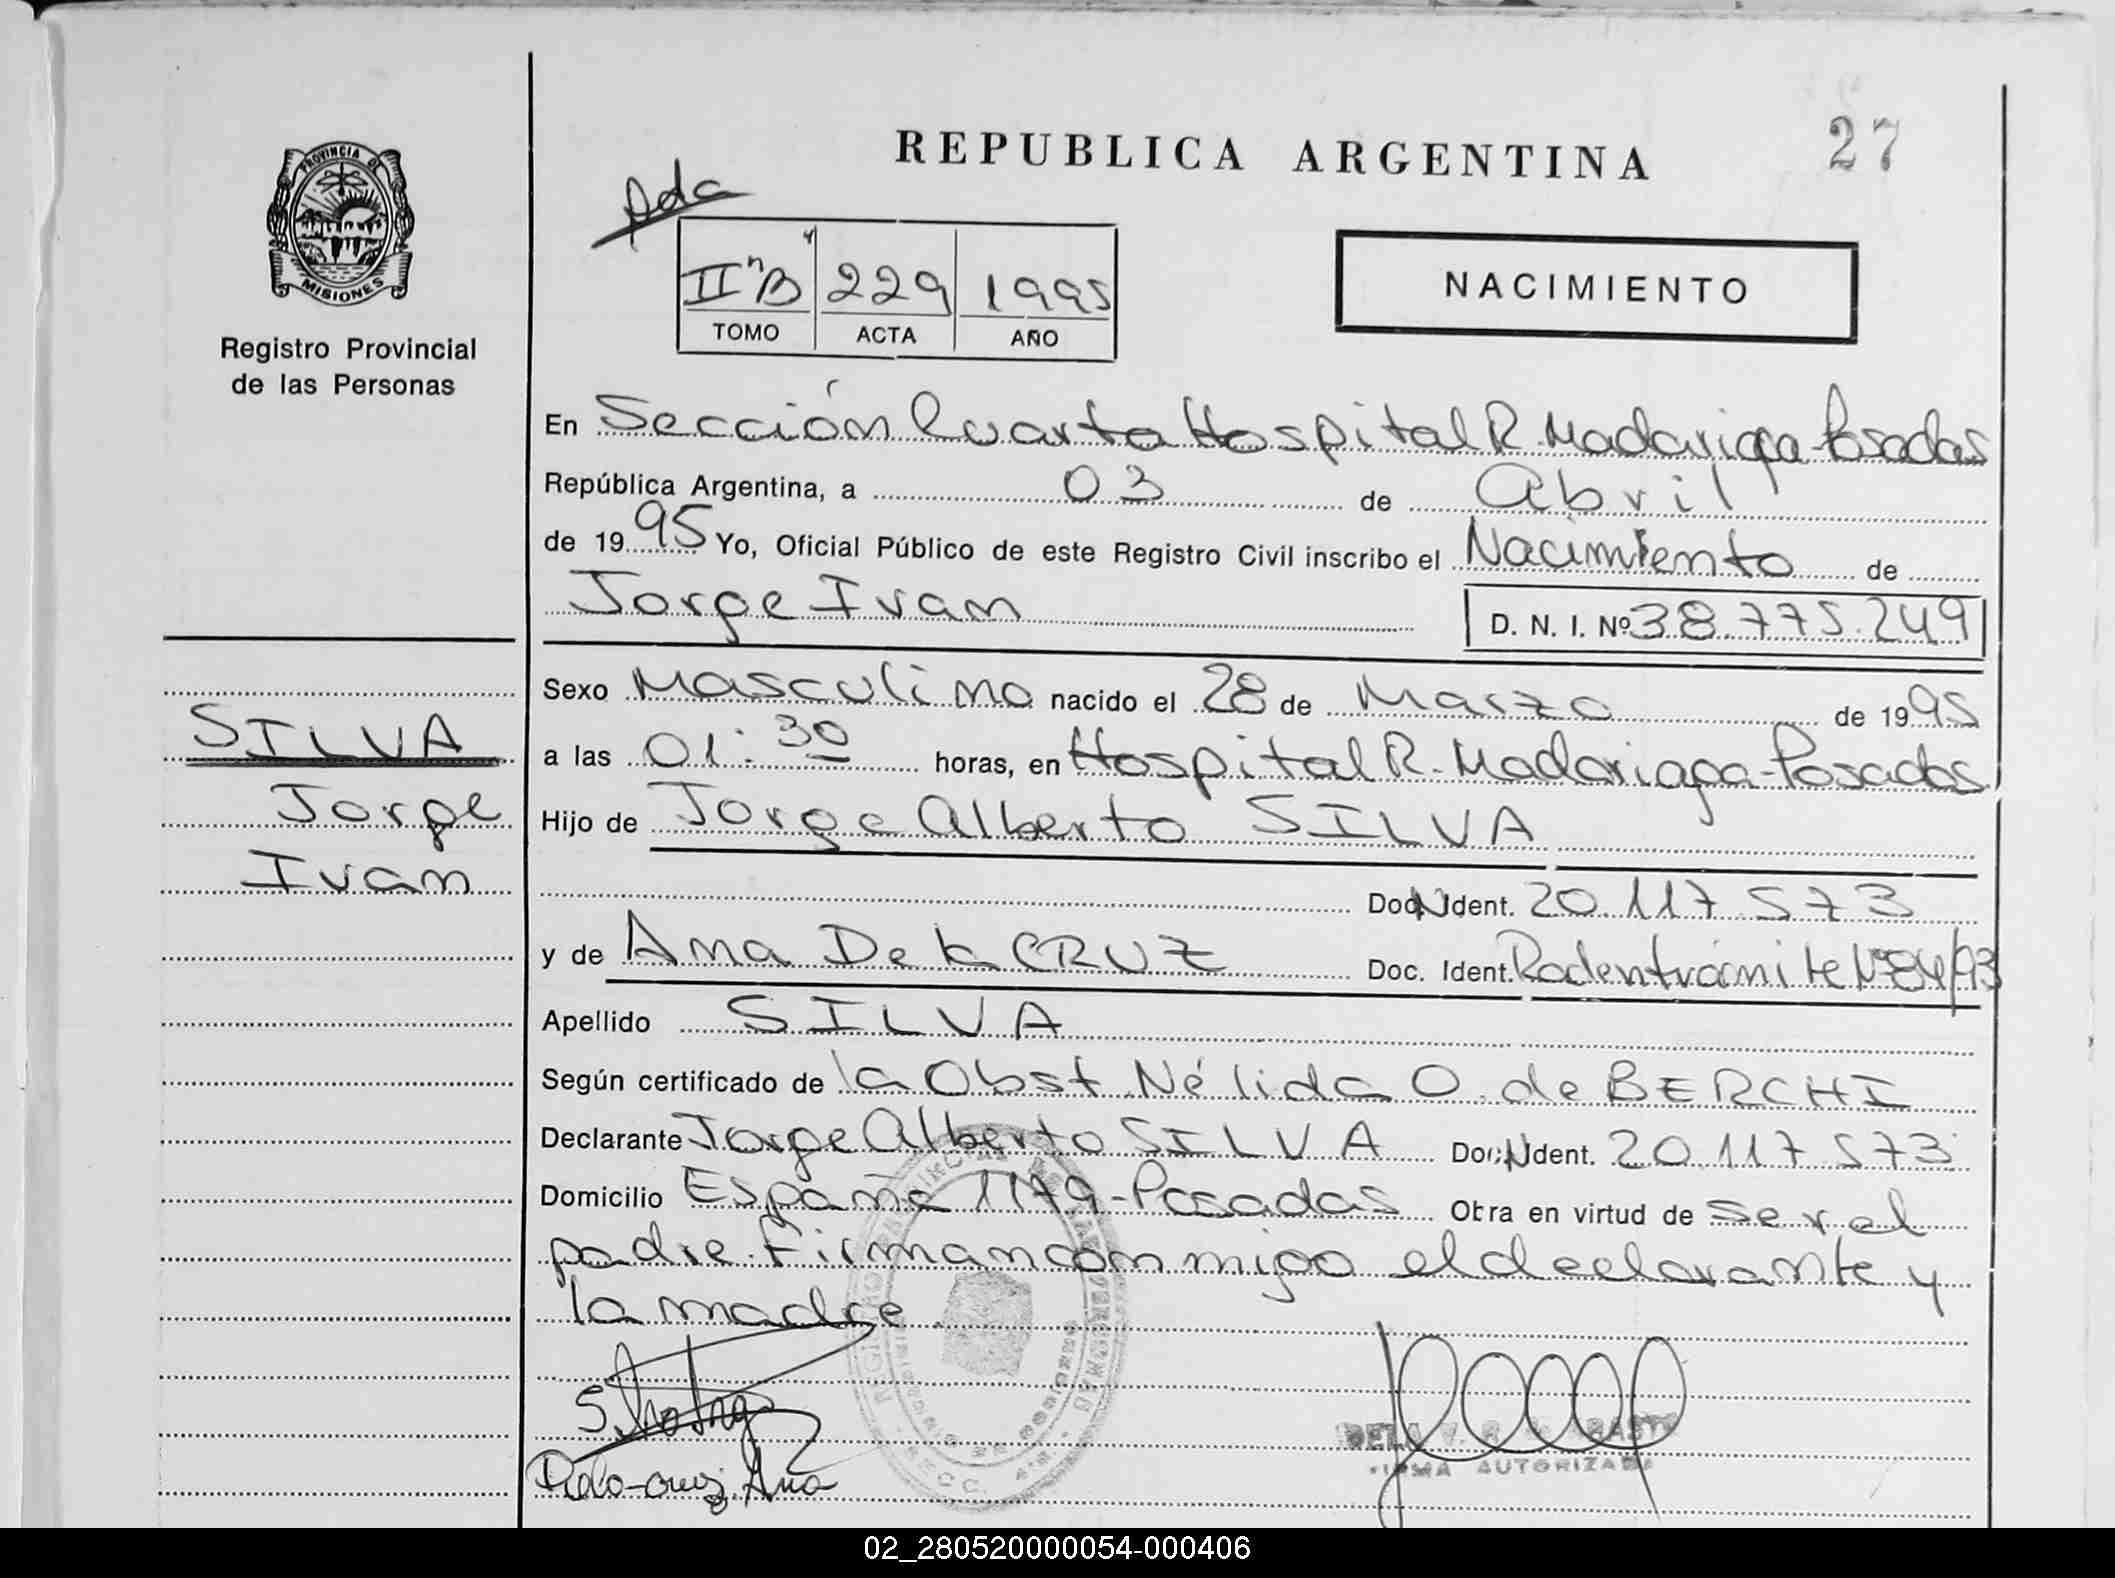 27
REPUBLICA ARGENTINA
Ada
PROVINCIA DE
MISIONES
Registro Provincial
de las Personas
II "B" 229 1995
TOMO ACTA AÑO
NACIMIENTO
En Sección Cuarta Hospital R. Madariaga-Posadas
República Argentina, a 03 de Abril
de 1995 Yo, Oficial Público de este Registro Civil inscribo el Nacimiento de
Jorge Ivan D. N. I. Nº 38.775.249
Sexo Masculino nacido el 28 de Marzo de 1995
SILVA
a las 01:30 horas, en Hospital R. Madariaga-Posadas
Jorge
Hijo de Jorge Alberto SILVA
Ivan
Doc. Ident. 20.117.573
y de Ana De la CRUZ Doc. Ident. Rad en trámite Nº 84/93
Apellido SILVA
Según certificado de la Obst. Nélida O. de BERCHI
Declarante Jorge Alberto SILVA Doc. Ident. 20.117.573
Domicilio España 1179-Posadas Obra en virtud de ser el
padre. Firman conmigo el declarante y
la madre.
FIRMA AUTORIZADA
Ana
02_280520000054-000406